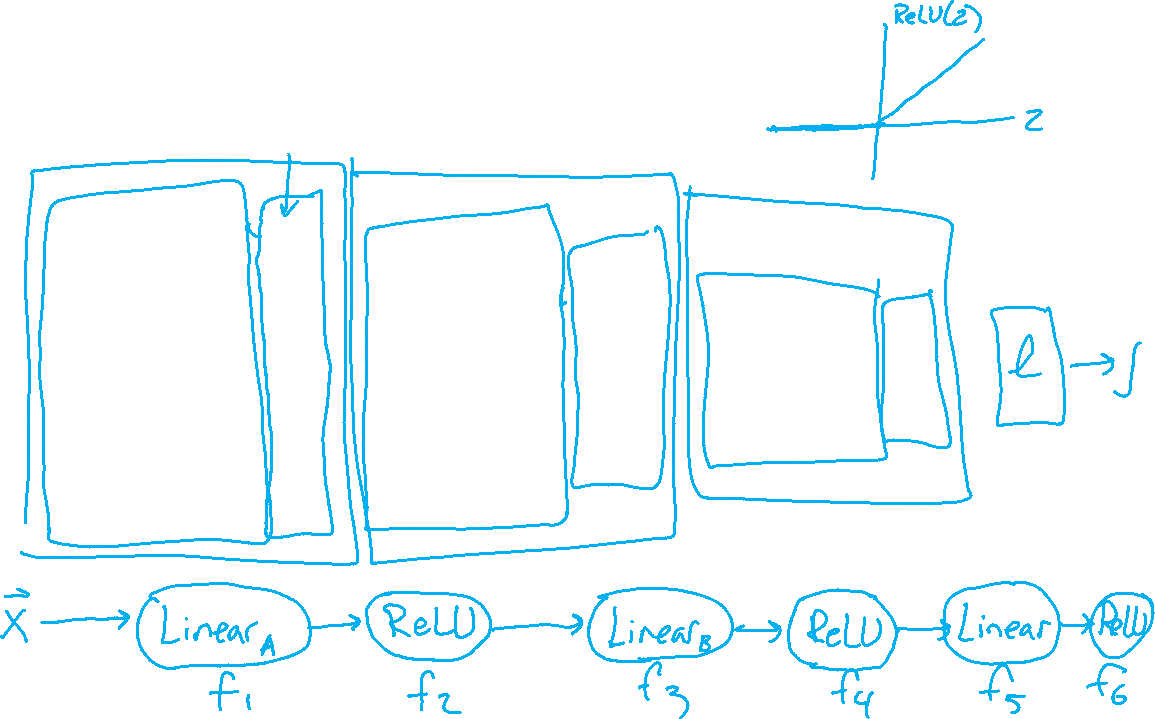 ReLU(z)
z
l → J
X → Linear A → ReLU → Linear B → ReLU → Linear → ReLU
f1 f2 f3 f4 f5 f6